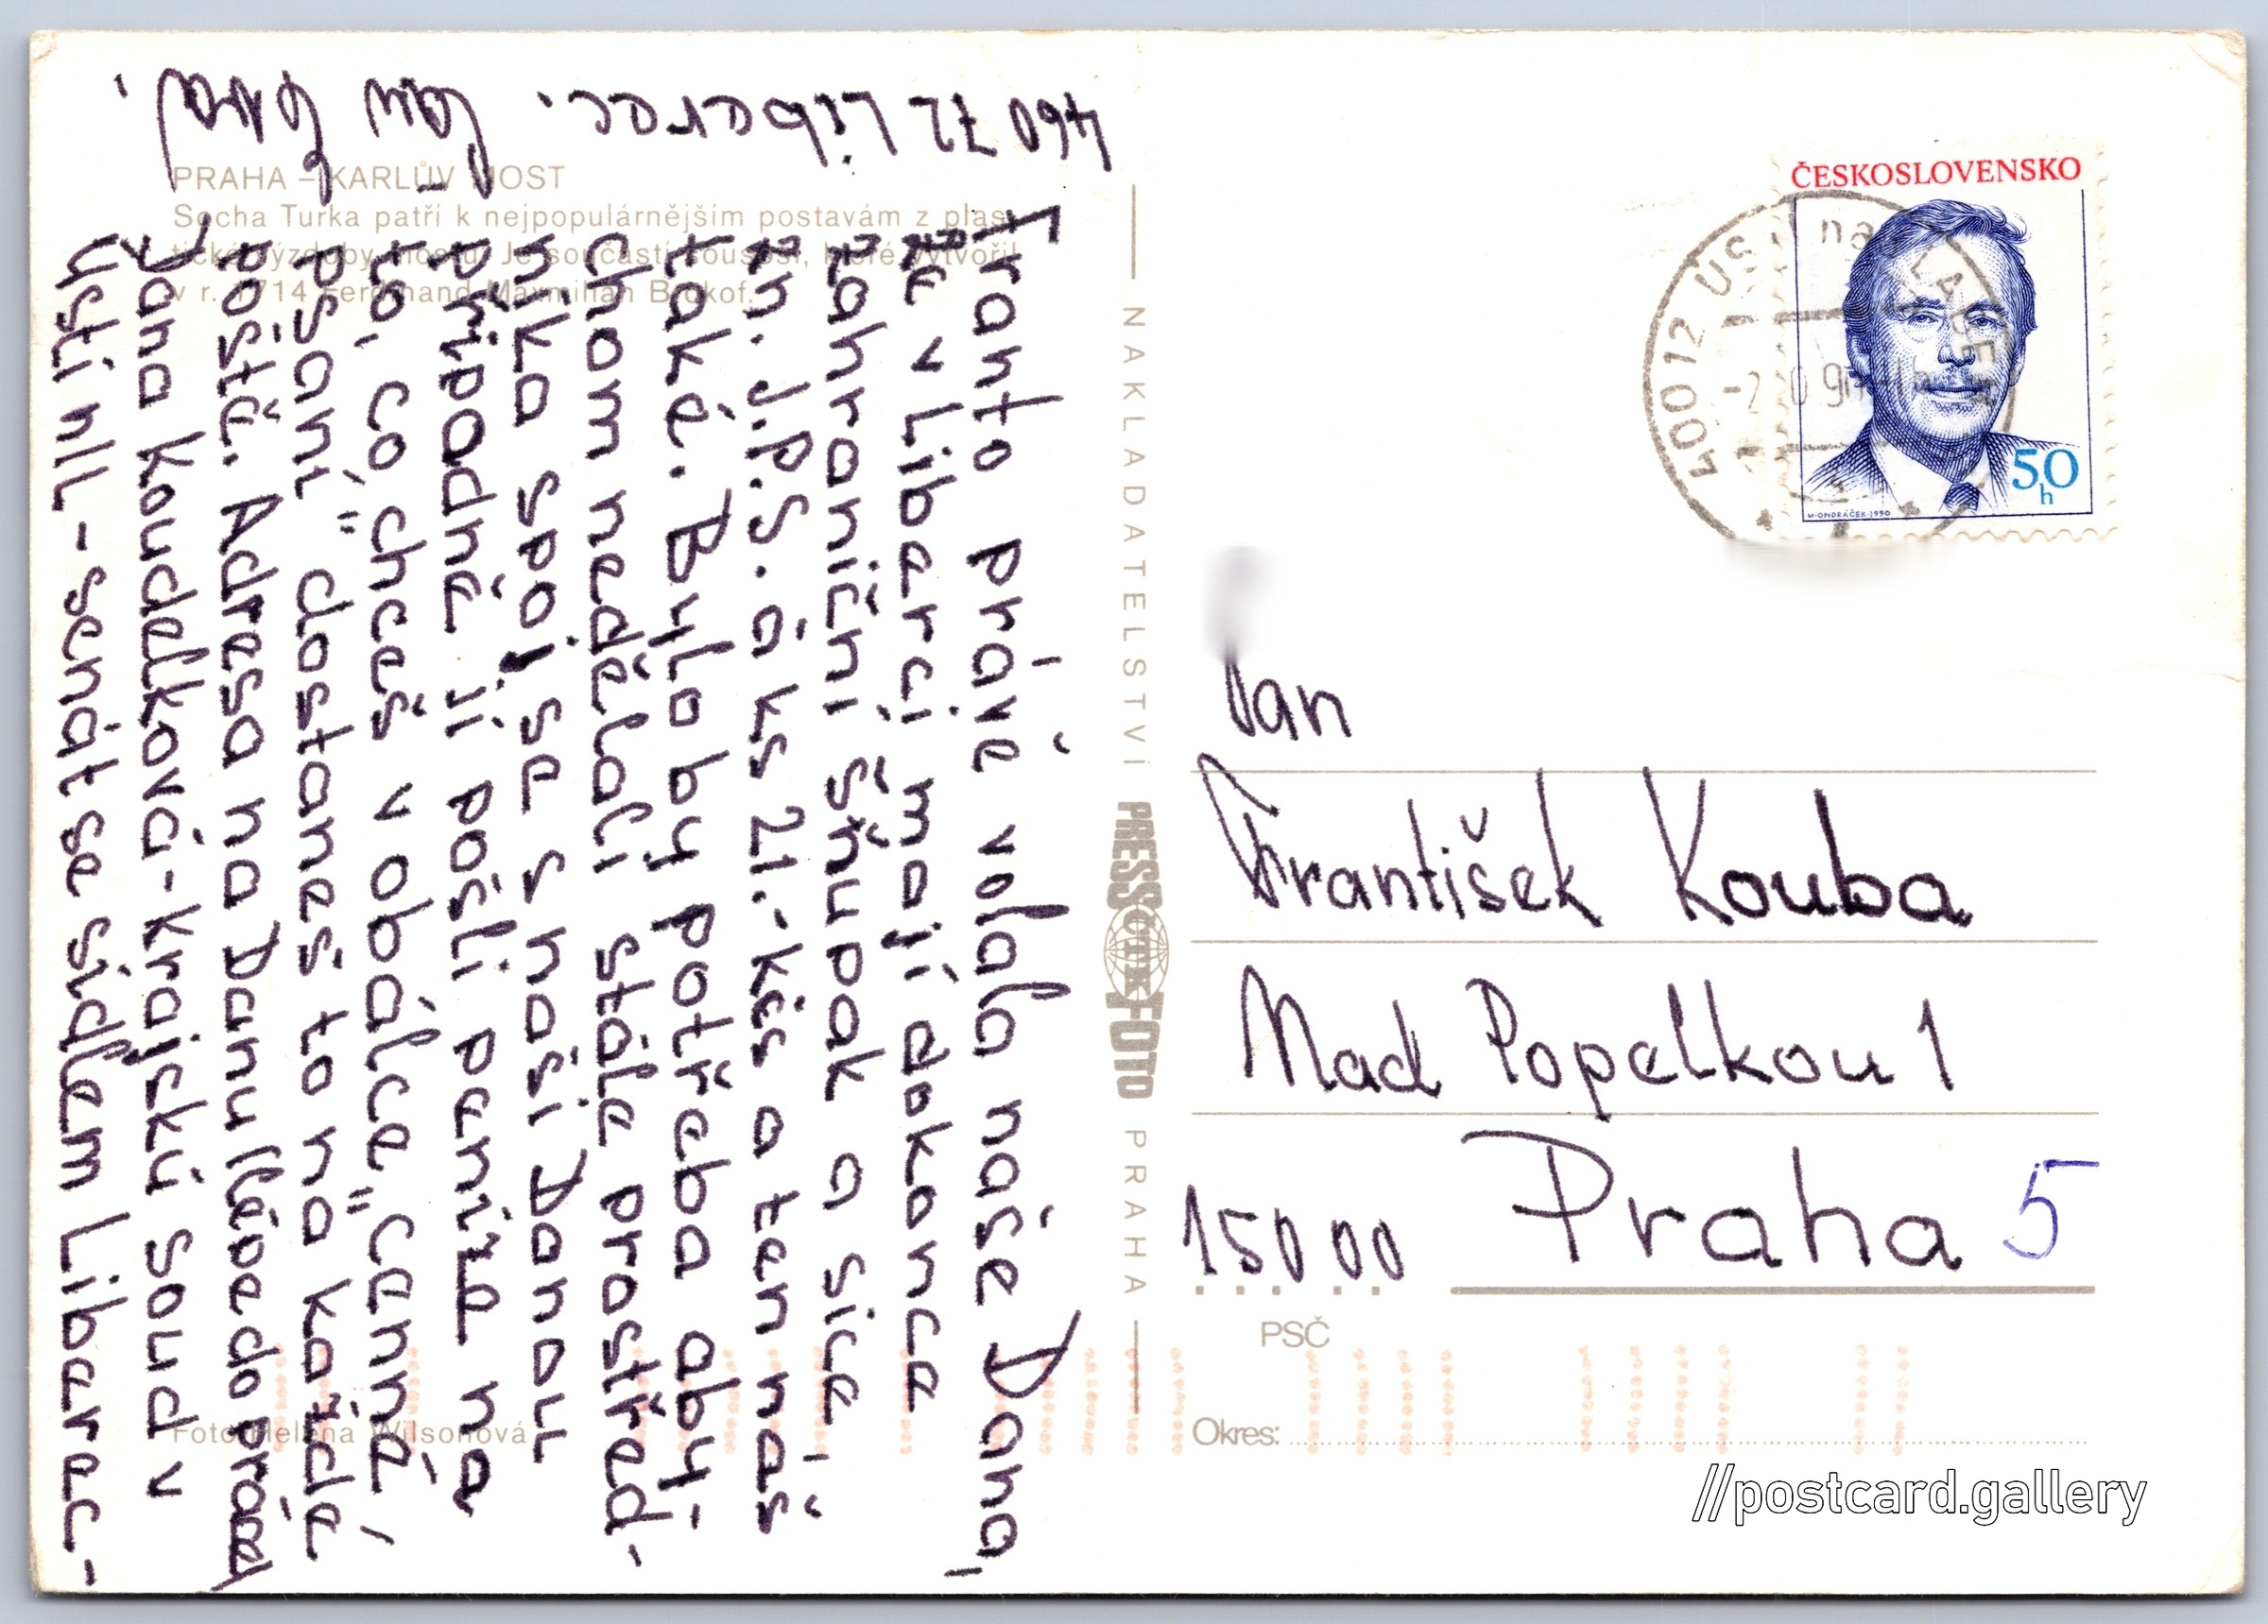 PRAHA – KARLŮV MOST
Socha Turka patří k nejpopulárnějším postavám z plas-
tické výzdoby mostu. Je součástí sousoší, které vytvořil
v r. 1714 Ferdinand Maxmilián Brokof.
Franto právě volala naše Dana,
že v Liberci mají dokonce
zahraniční šňupak a sice
zn. J.P.S. à ks 21.- Kčs a ten náš
také. Bylo by potřeba aby-
chom nedělali stále prostřed-
níka spoj se s naší Danou
případně jí pošli peníze na
to, co chceš v obálce "cenné
psaní" dostaneš to na každé
poště. Adresa na Danu
Jana Koudelková - krajský soud v
Ústí n/L - senát se sídlem Liberec -
460 72 Liberec.
ČESKOSLOVENSKO
50
h
M·ONDRÁČEK·1990
400 12 ÚSTÍ nad LABEM
Pan
František Kouba
Nad Popelkou 1
150 00 Praha 5
PSČ
Okres:
NAKLADATELSTVÍ PRESSFOTO PRAHA
ČTK
Foto Helena Wilsonová
//postcard.gallery